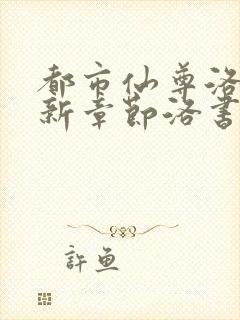 都市仙尊洛
新章节洛書
許魚